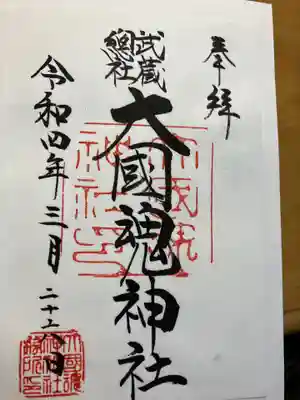 奉拝
武蔵
總社
大國魂神社
令和四年三月二十八日